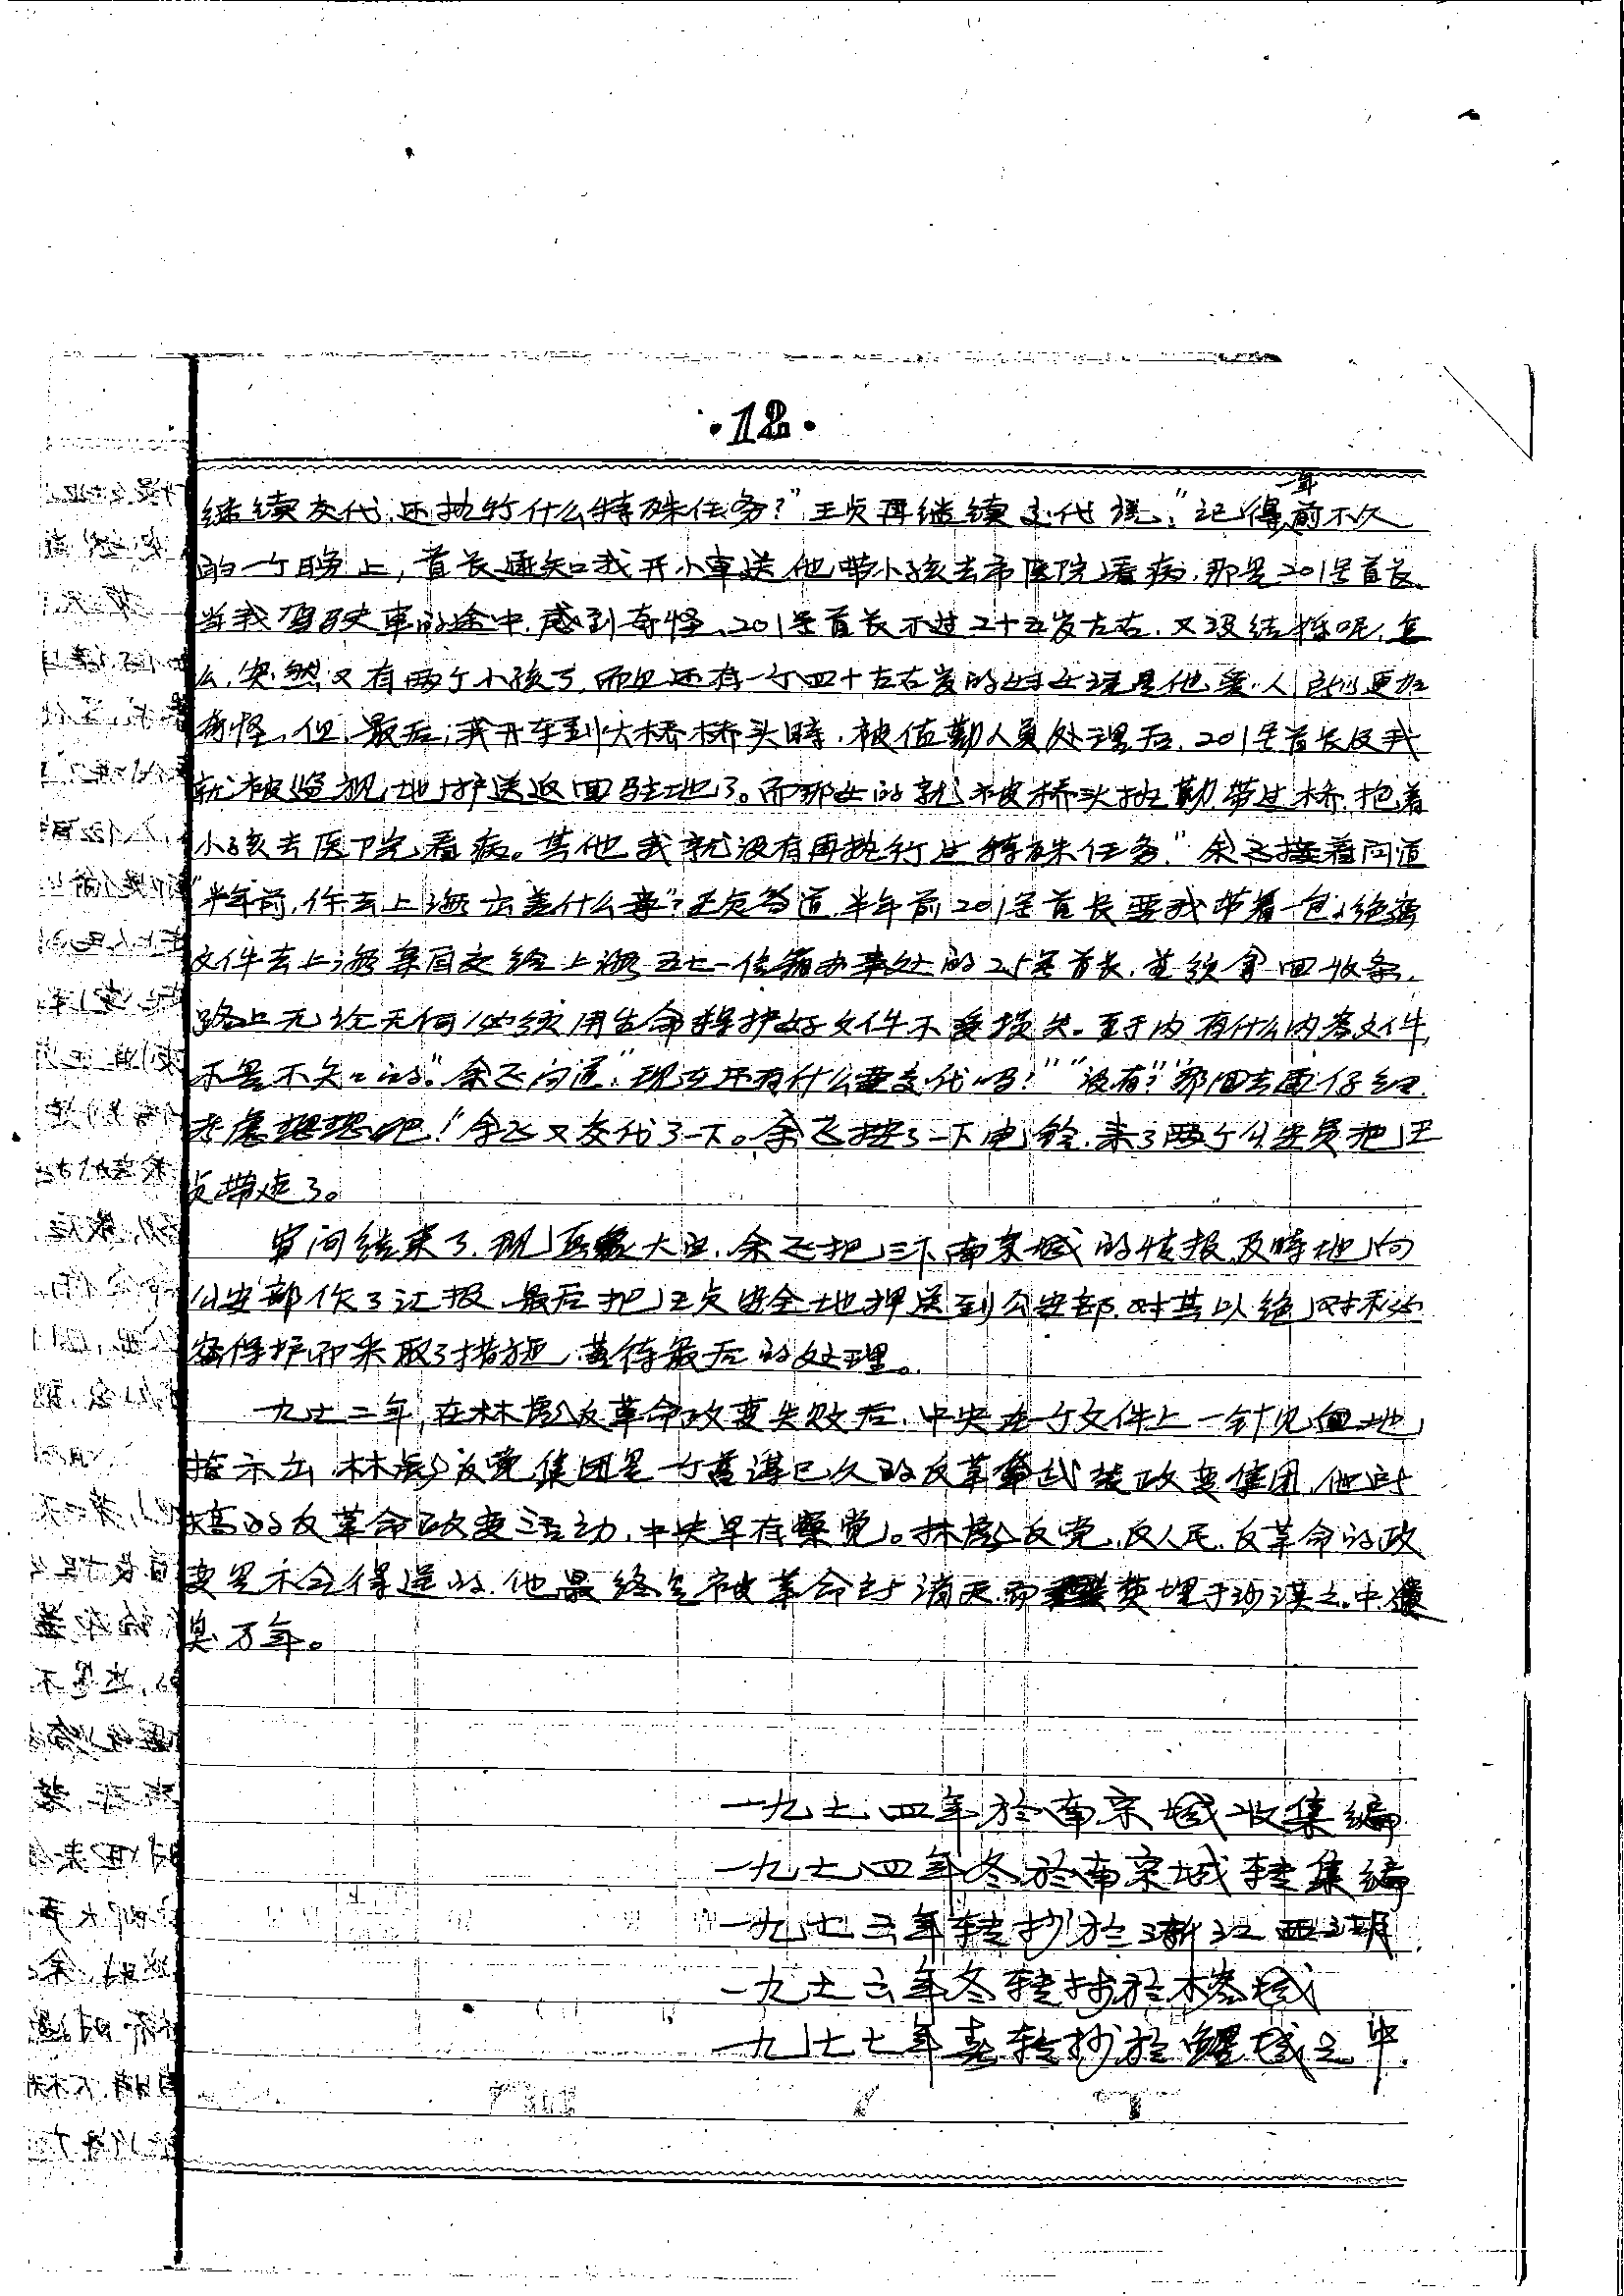 ·12·
继续交代,还执行什么特殊任务?"王贞再继续交代说:"记得年前不久
的一个晚上,首长通知我开小車送他带小孩去市医院看病,那是201号首长.
当我驾驶車的途中,感到奇怪,201号首长不过二十五岁左右,又没结婚呢,怎
么,突然又有两个小孩了,而且还有一个四十左右岁的妇女说是他爱人,我更加
奇怪,但,最后,我开车到大桥桥头時,被值勤人員处理后,201号首长及我
就被监视地护送返回驻地了。而那女的就被桥头执勤带过桥,抱着
小孩去医院看病。其他我就没有再执行过特殊任务."余飞接着问道
"半年前,你去上海去差什么事"?王贞答道,半年前201号首长要我带着一包绝密
文件去上海亲自交给上海五七一信箱办事处的25号首长,并须拿回收条,
路上无论无何必须用生命保护好文件不受损失。至于内有什么内容文件,
不是不知的."余飞问道:"现在还有什么要交代吗?""没有?"那回去再仔细
考虑想想吧!"余飞又交代了一下。余飞按了一下电铃,来了两个公安员把王
贞带走了。
审问结束了,大白.余飞把三下南京城的情报及時地向
公安部作了汇报,最后把王贞安全地押送到公安部,对其以绝对秘
密保护而采取了措施,等待最后的处理。
九七二年,在林彪反革命政变失败后,中央在一个文件上一针见血地
指示出,林彪反党集团是一个蓄谋已久的反革命武装政变集团,他所
搞的反革命政变活动,中央早有察觉。林彪反党,反人民,反革命的政
变是不会得逞的,他最终是被革命所消灭而葬埋于沙漠之中,遗
臭万年。
一九七四年於南京城收集編
一九七四年冬於南京城转集編
一九七五年转抄於浙江西湖
一九七五年冬转抄於榕城
一九七七年春转抄於城之中.